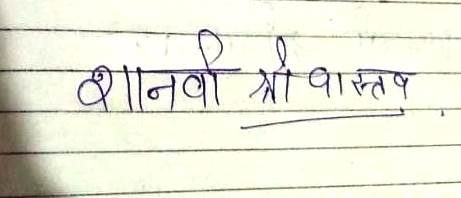 शानवी श्रीवास्तव